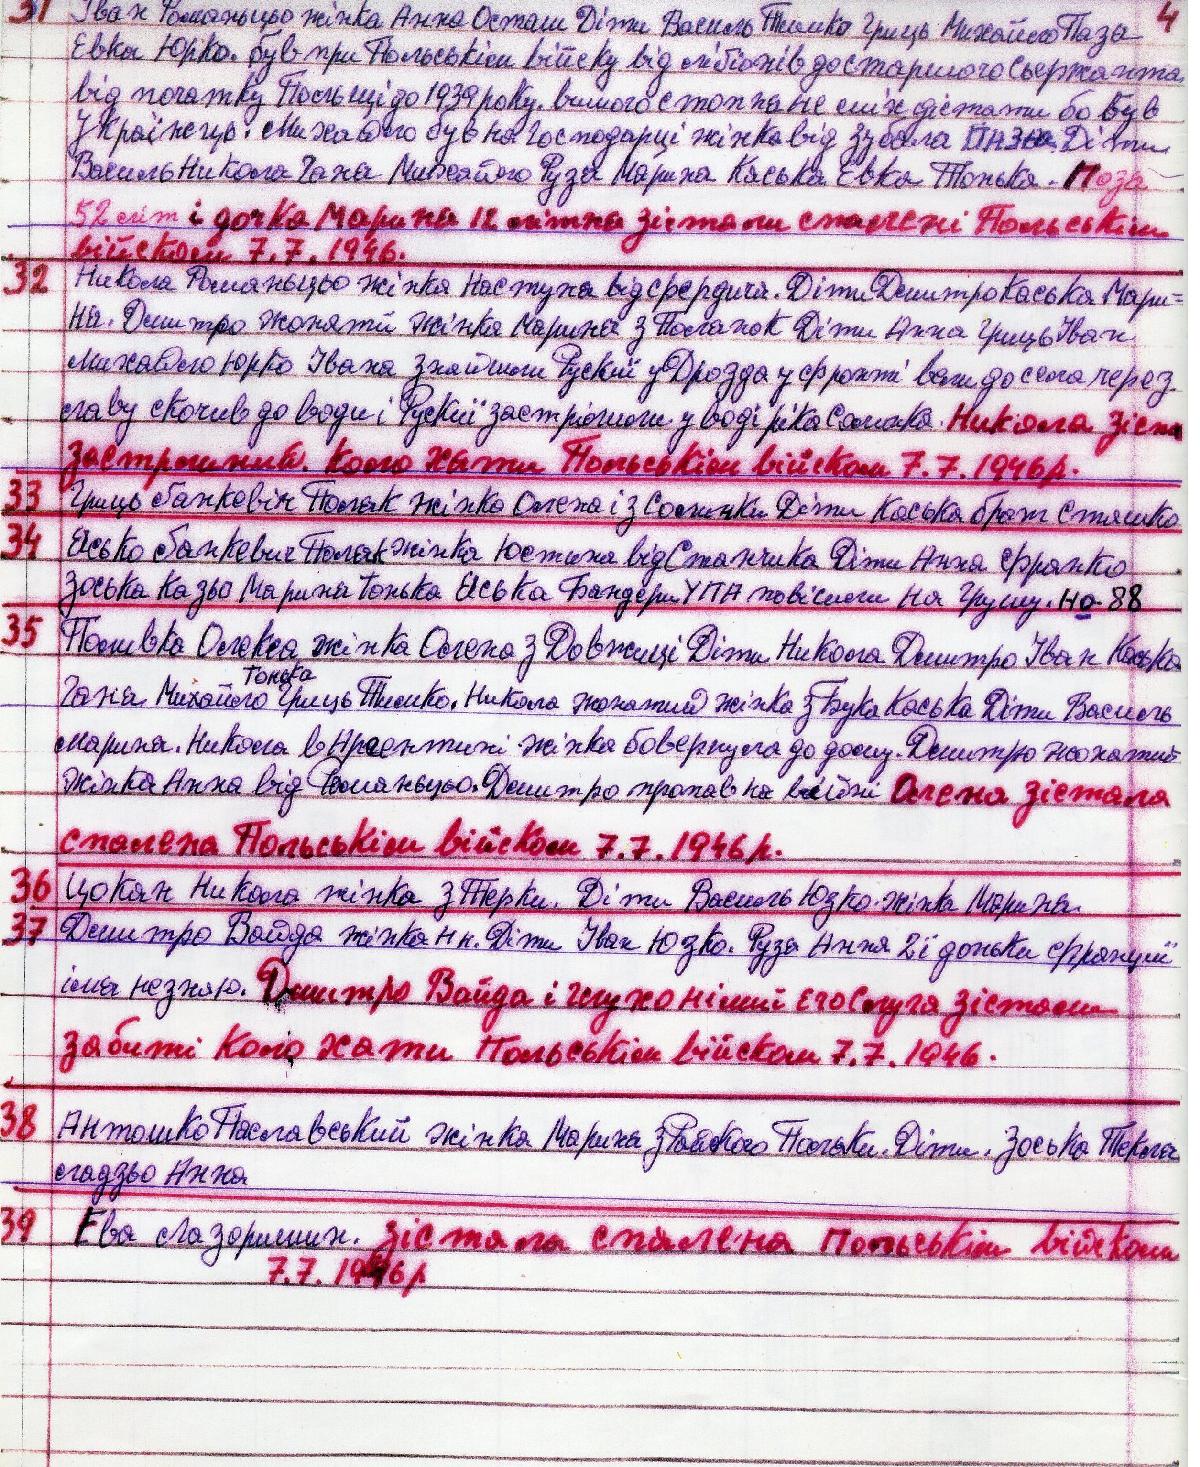 4
31 Іван Романьцьо жінка Анна Осташ Діти Василь Тимко Гриць Михайло Паза
Евка Юрко. був при Польськім війску від до старшого сьержанта
від початку Польщі до 1939 року. вищого стопня не міх дістати бо був
Українець. Михайло був на Господарці жінка від Зубала Пазя. Діти
Василь Никола Гана Михайло Рузя Марина Каська Евка Тонька. Поза
52 літ і дочка Марина 12 літна зістали спалені Польськім
війском 7.7.1946.
32 Никола Романьцьо жінка Настуня від Сфердича. Діти Дмитро Каська Мари=
на. Дмитро жонятй жінка Марина з Поланок Діти Анна Гриць Іван
Михайло Юрко Івана знайшли Рускиї у Дрозда у фронті вели до села через
лаву скочив до води і Рускиї застрілили у воді ріка Солинка. Никола зіста
застрілиний. коло хати Польськім війском 7.7.1946р.
33 Гриць банковін Поляк жінка Олена із Солинки Діти Каська брат Сташко
34 Яську банкевич Поляк жінка Юстина від Станчика Діти Анна Франко
Зоська Казьо Марина Тонька Яська Бандери УПА повісили на Грушу. но 88
35 Поливка Олекса жінка Олена з Довжиці Діти Никола Дмитро Іван Каська
Тонька
Гана Михайло Гриць Тимко. Никола жонатий жінка з Бука Каська Діти Василь
Марина. Никола в Аргентині жінка бовернула до дому. Дмитро жонатий
жінка Анна від Романьцьо. Дмитро пропав на війні Олена зістала
спалена Польськім війском 7.7.1946р.
36 Цокан Никола жінка з Терки. Діти Василь Юзко жінка Марина.
37 Дмитро Вайда жінка Нн. Діти Іван Юзко. Рузя Анна 2ї доньки Франциї
імя незнаю. Дмитро Вайда і глухо німий єго Слуга зістали
забиті коло хати Польськім війском 7.7.1946.
38 Антошко Паславський жінка Марина з Райского Польки. Діти. Зоська Текля
Ладзьо Анна
39 Ева Лазоришин. зістала спалена Польськім війском
7.7.1946р